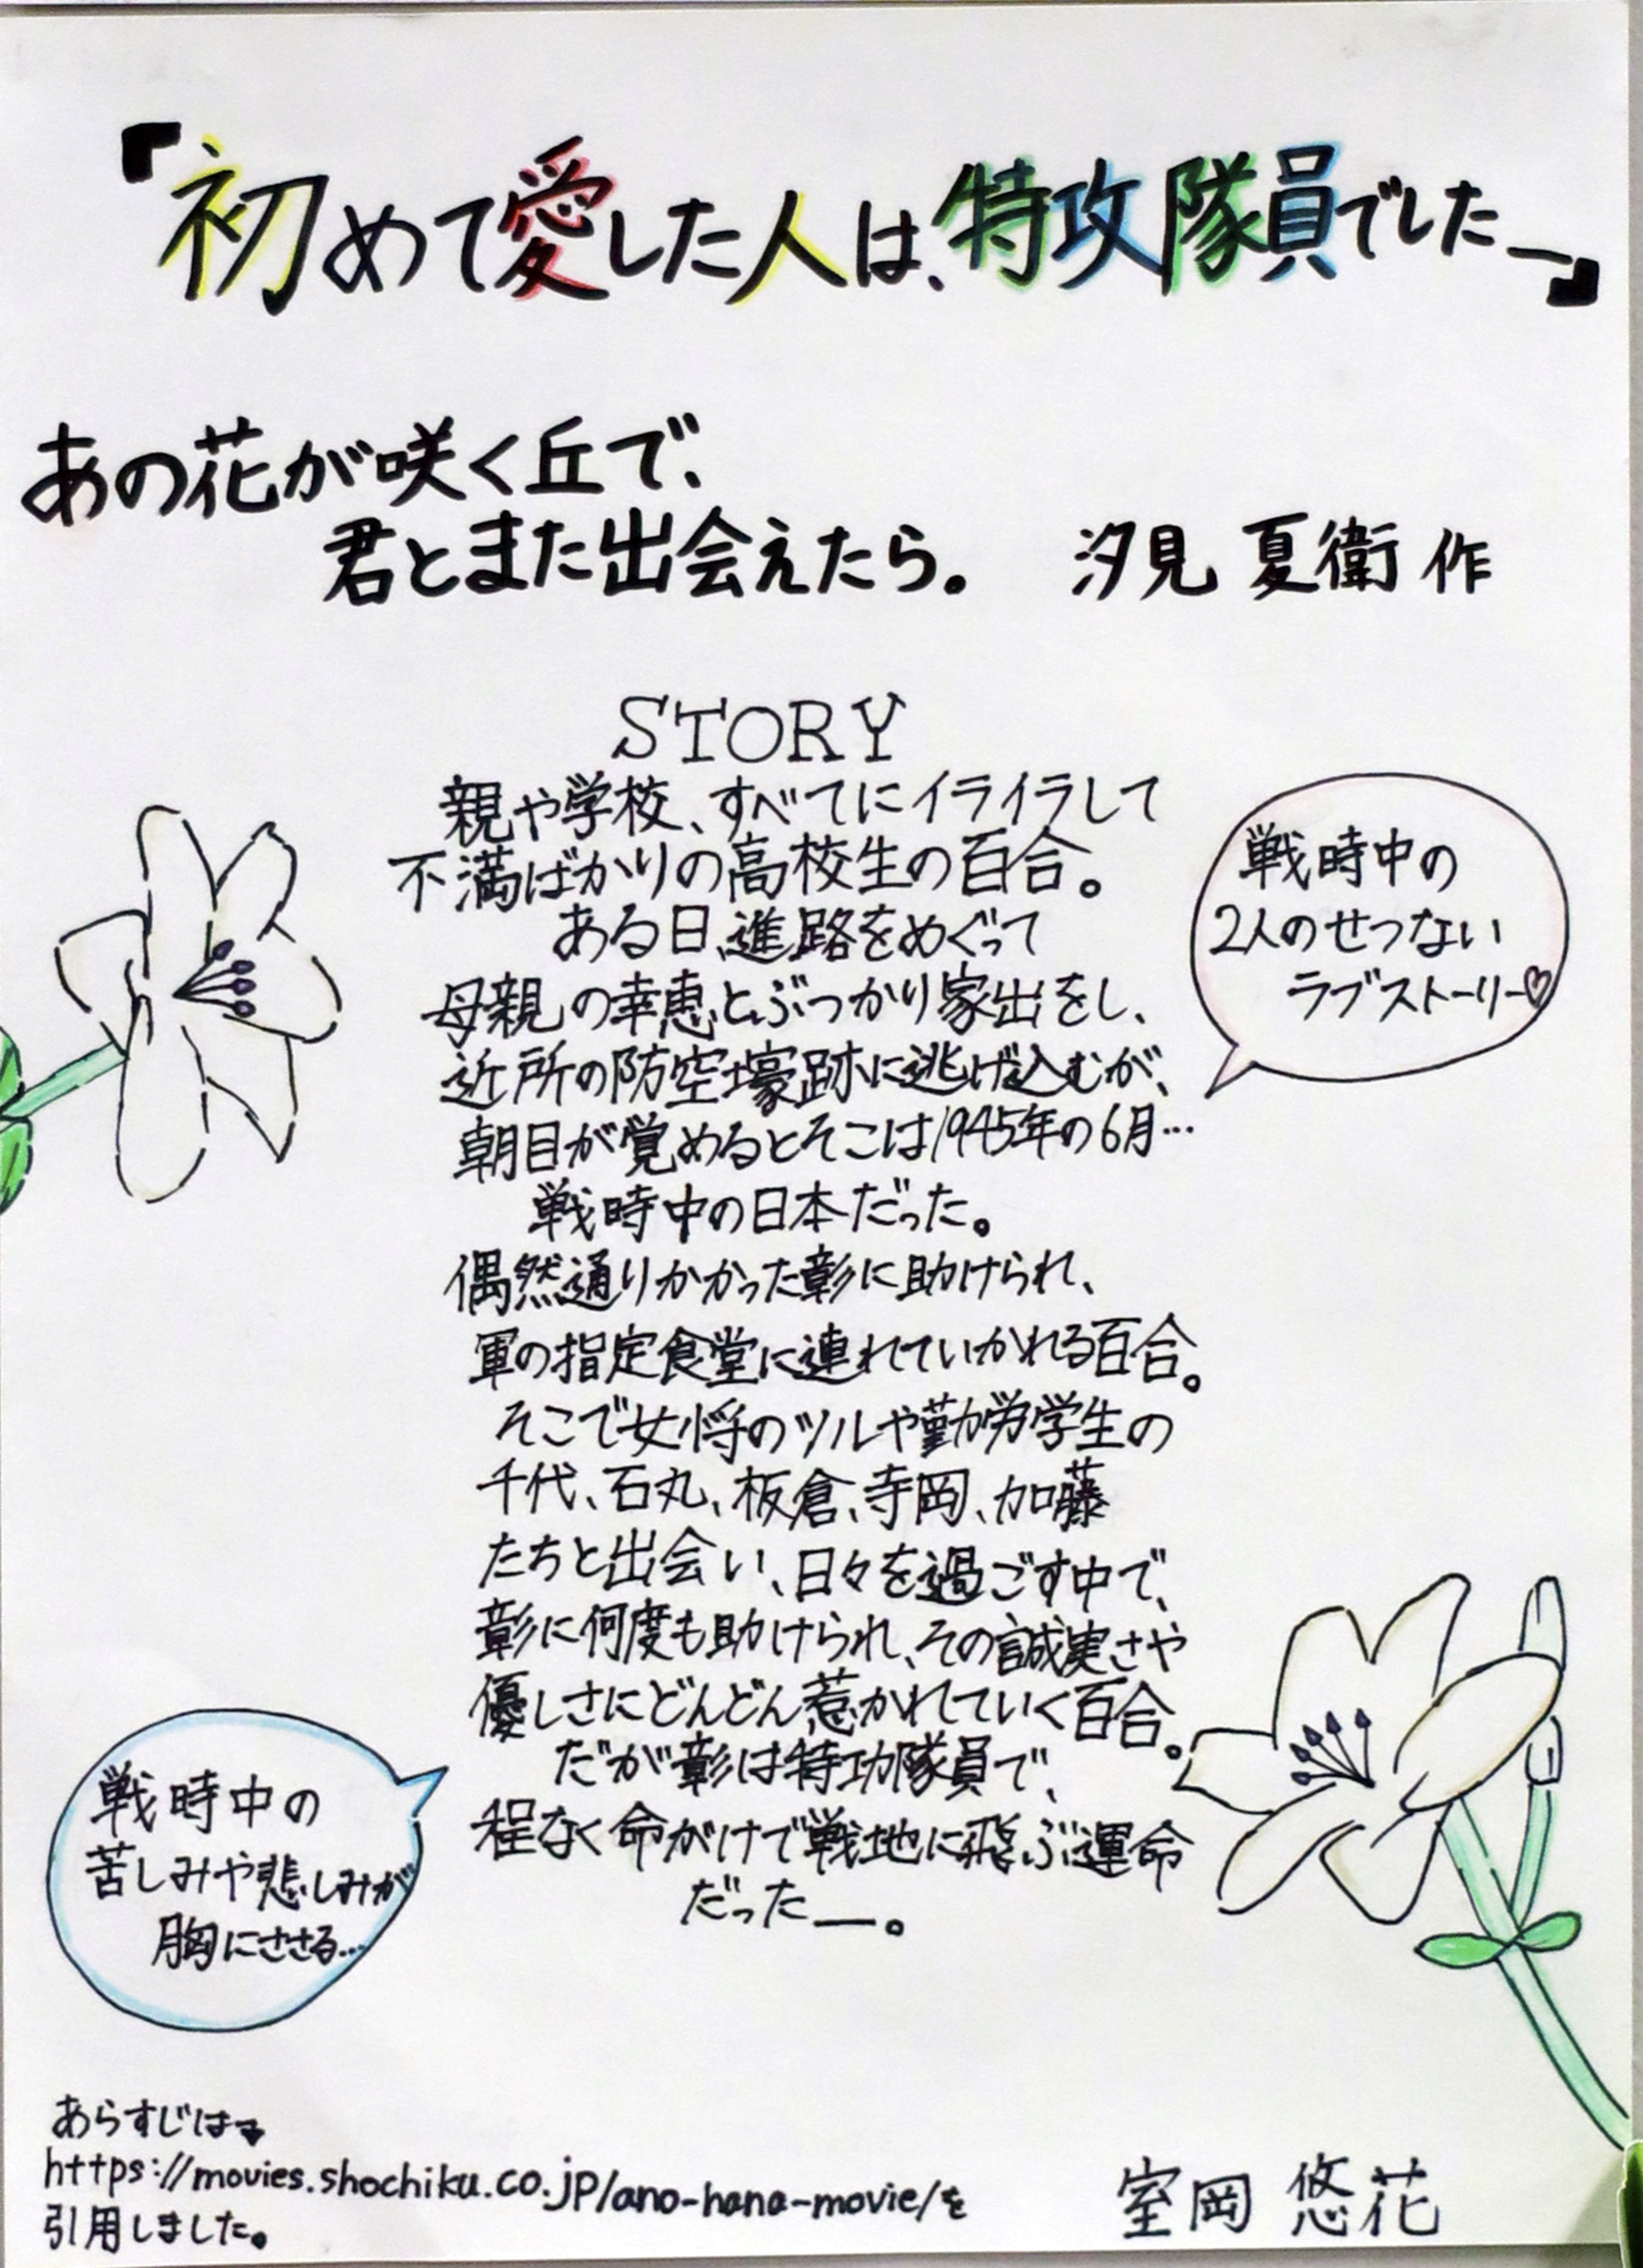 『初めて愛した人は、特攻隊員でした―』
あの花が咲く丘で、
君とまた出会えたら。 汐見 夏衛 作
STORY
親や学校、すべてにイライラして
不満ばかりの高校生の百合。
ある日、進路をめぐって
母親の幸恵とぶつかり家出をし、
近所の防空壕跡に逃げ込むが、
朝目が覚めるとそこは1945年の6月…
戦時中の日本だった。
偶然通りかかった彰に助けられ、
軍の指定食堂に連れていかれる百合。
そこで女将のツルや勤労学生の
千代、石丸、板倉、寺岡、加藤
たちと出会い、日々を過ごす中で、
彰に何度も助けられ、その誠実さや
優しさにどんどん惹かれていく百合。
だが彰は特功隊員で、
程なく命がけで戦地に飛ぶ運命
だった―。
戦時中の
2人のせつない
ラブストーリー♡
戦時中の
苦しみや悲しみが
胸にささる…
あらすじは→
https://movies.shochiku.co.jp/ano-hana-movie/を
引用しました。
室岡 悠花